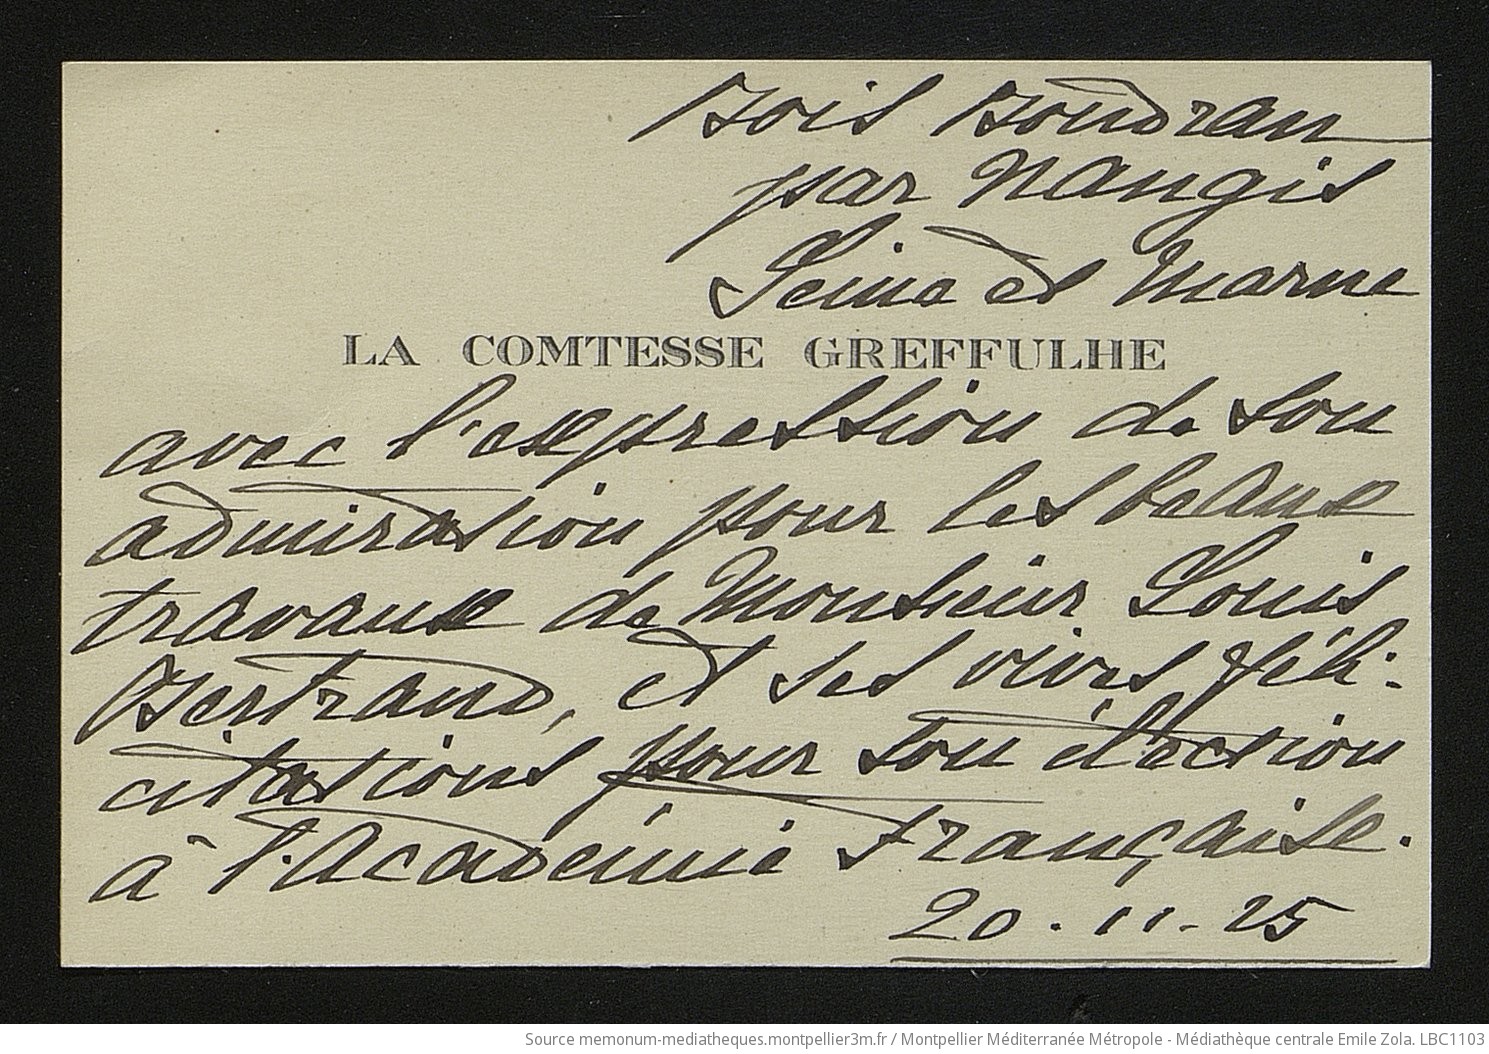 Bois Boudran
par Nangis
Seine et Marne
LA COMTESSE GREFFULHE
avec l'expression de son
admiration pour les beaux
travaux de Monsieur Louis
Bertrand, et ses vives féli-
citations pour son élection
à l'Académie Française.
20.11.25
Source memonum-mediatheques.montpellier3m.fr / Montpellier Méditerranée Métropole - Médiathèque centrale Emile Zola. LBC1103